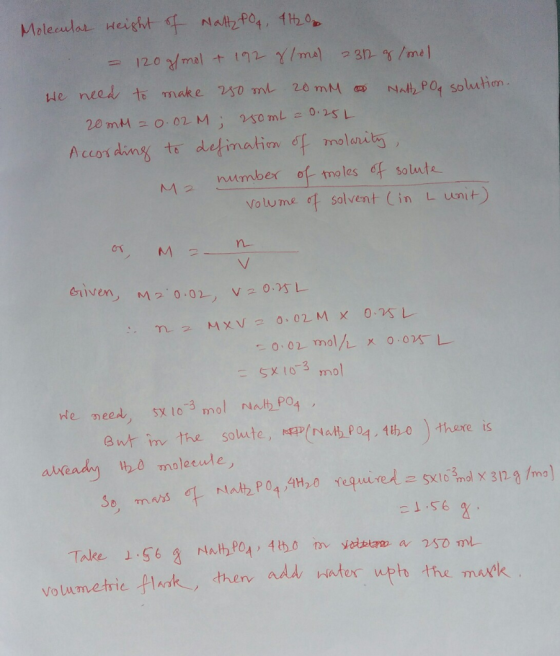 Molecular weight of NaH2PO4, 4H2O
= 120 g/mol + 192 g/mol = 312 g/mol
We need to make 250 mL 20 mM NaH2PO4 solution.
20 mM = 0.02 M ; 250 mL = 0.25 L
According to defination of molarity,
M = number of moles of solute / volume of solvent (in L unit)
or, M = n / V
Given, M = 0.02, V = 0.25 L
∴ n = M×V = 0.02 M × 0.25 L
= 0.02 mol/L × 0.025 L
= 5×10⁻³ mol
We need, 5×10⁻³ mol NaH2PO4.
But in the solute, (NaH2PO4, 4H2O) there is
already H2O molecule,
So, mass of NaH2PO4, 4H2O required = 5×10⁻³ mol × 312 g/mol
= 1.56 g.
Take 1.56 g NaH2PO4, 4H2O in a 250 mL
volumetric flask, then add water upto the mark.